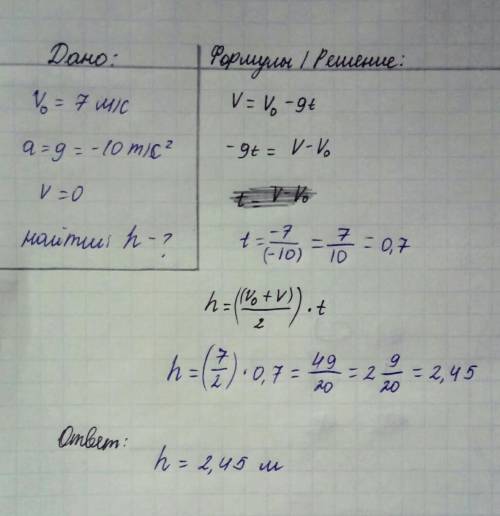 Дано:
V₀ = 7 м/с
a = g = -10 m/с²
V = 0
найти: h - ?
Формулы / Решение:
V = V₀ - gt
-gt = V - V₀
t = V - V₀
t = -7/(-10) = 7/10 = 0,7
h = ((V₀ + V)/2) · t
h = (7/2) · 0,7 = 49/20 = 2 9/20 = 2,45
Ответ:
h = 2,45 м